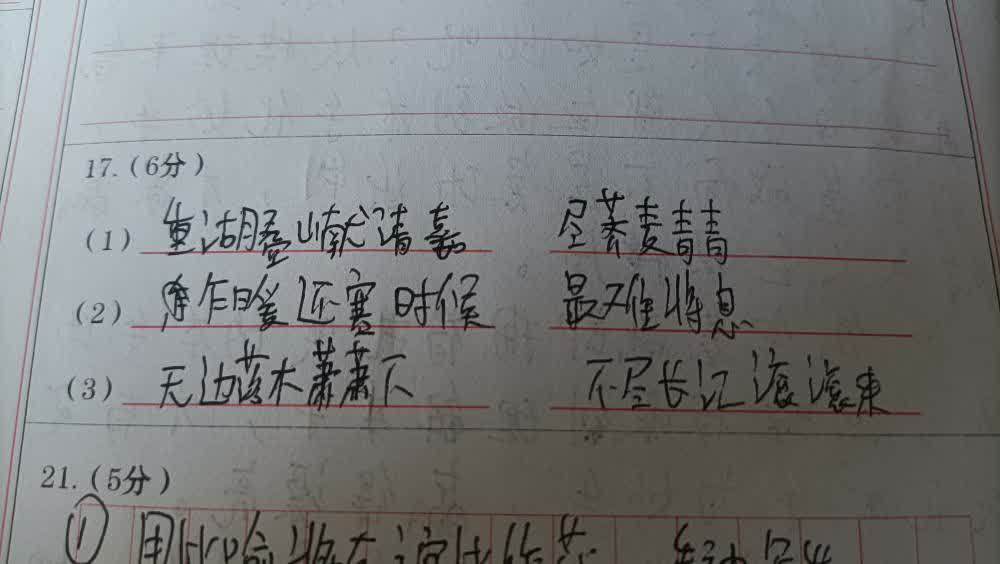 17.(6分)
(1) 重湖叠巘清嘉 尽荠麦青青
(2) 乍暖还寒时候 最难将息
(3) 无边落木萧萧下 不尽长江滚滚来
21.(5分)
①用比喻